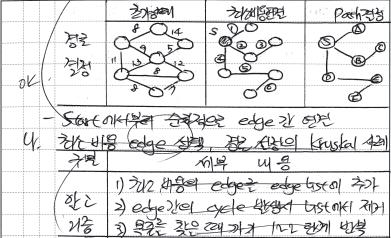 초기상태 최소비용연결 Path결정
경로
결정
8 14
9 5
11 13 12
8 7
S
S
D E
OK
- Start에서부터 순차적으로 edge간 연결
나. 최소 비용 edge 선택, 경로 선정의 Kruskal 사례
구분 세부 내용
알고
리즘
1) 최소 비용의 edge를 edge list에 추가
2) edge간의 cycle 발생시 list에서 제거
3) 목표를 찾을때 까지 1~2 단계 반복